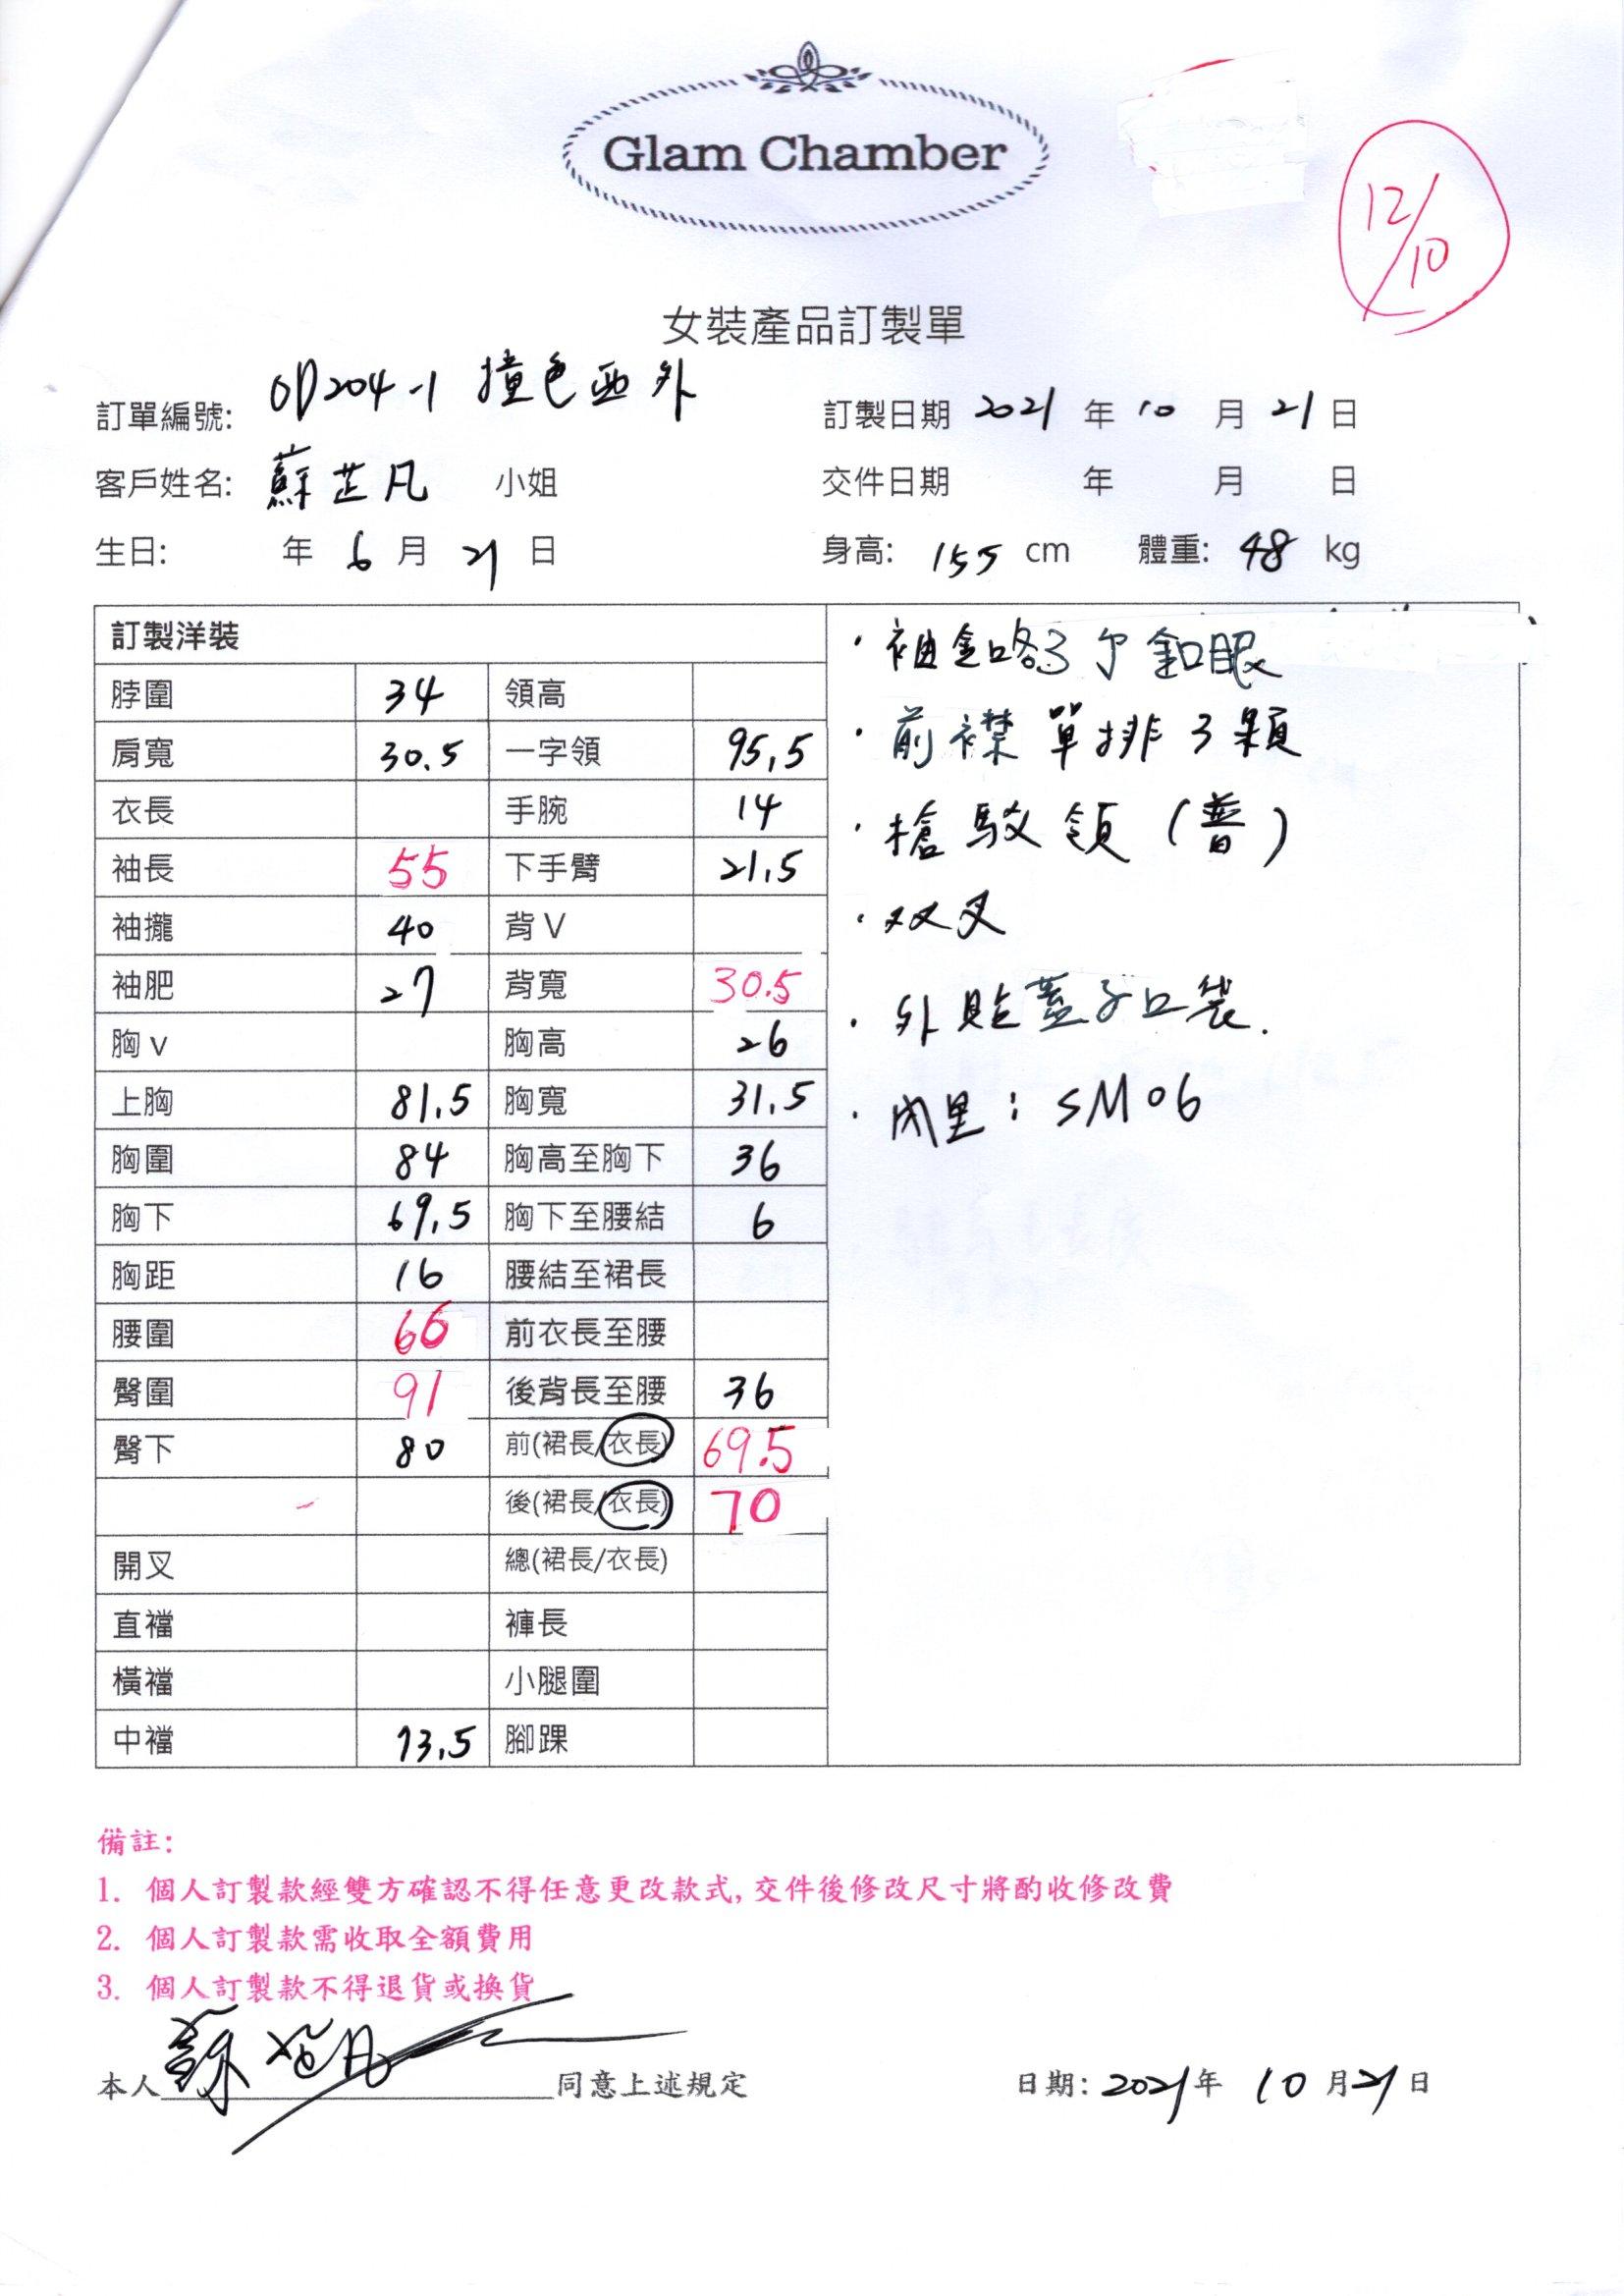 Glam Chamber
12/10
女裝產品訂製單
訂單編號: OD204-1 撞色西外
訂製日期 2021 年 10 月 21 日
客戶姓名: 蘇芷凡 小姐
交件日期 年 月 日
生日: 年 6 月 21 日
身高: 155 cm 體重: 48 kg
訂製洋裝
脖圍 34 領高
肩寬 30.5 一字領 95.5
衣長 手腕 14
袖長 55 下手臂 21.5
袖攏 40 背V
袖肥 27 背寬 30.5
胸v 胸高 26
上胸 81.5 胸寬 31.5
胸圍 84 胸高至胸下 36
胸下 69.5 胸下至腰結 6
胸距 16 腰結至裙長
腰圍 66 前衣長至腰
臀圍 91 後背長至腰 36
臀下 80 前(裙長/衣長) 69.5
後(裙長/衣長) 70
開叉 總(裙長/衣長)
直襠 褲長
橫襠 小腿圍
中襠 73.5 腳踝
·袖釦 3 釦眼
·前襟單排3顆
·槍駁領(普)
·双叉
·外貼蓋子口袋.
·內里:SM06
備註:
1. 個人訂製款經雙方確認不得任意更改款式,交件後修改尺寸將酌收修改費
2. 個人訂製款需收取全額費用
3. 個人訂製款不得退貨或換貨
本人 蘇芷凡 同意上述規定
日期: 2021年 10 月21日